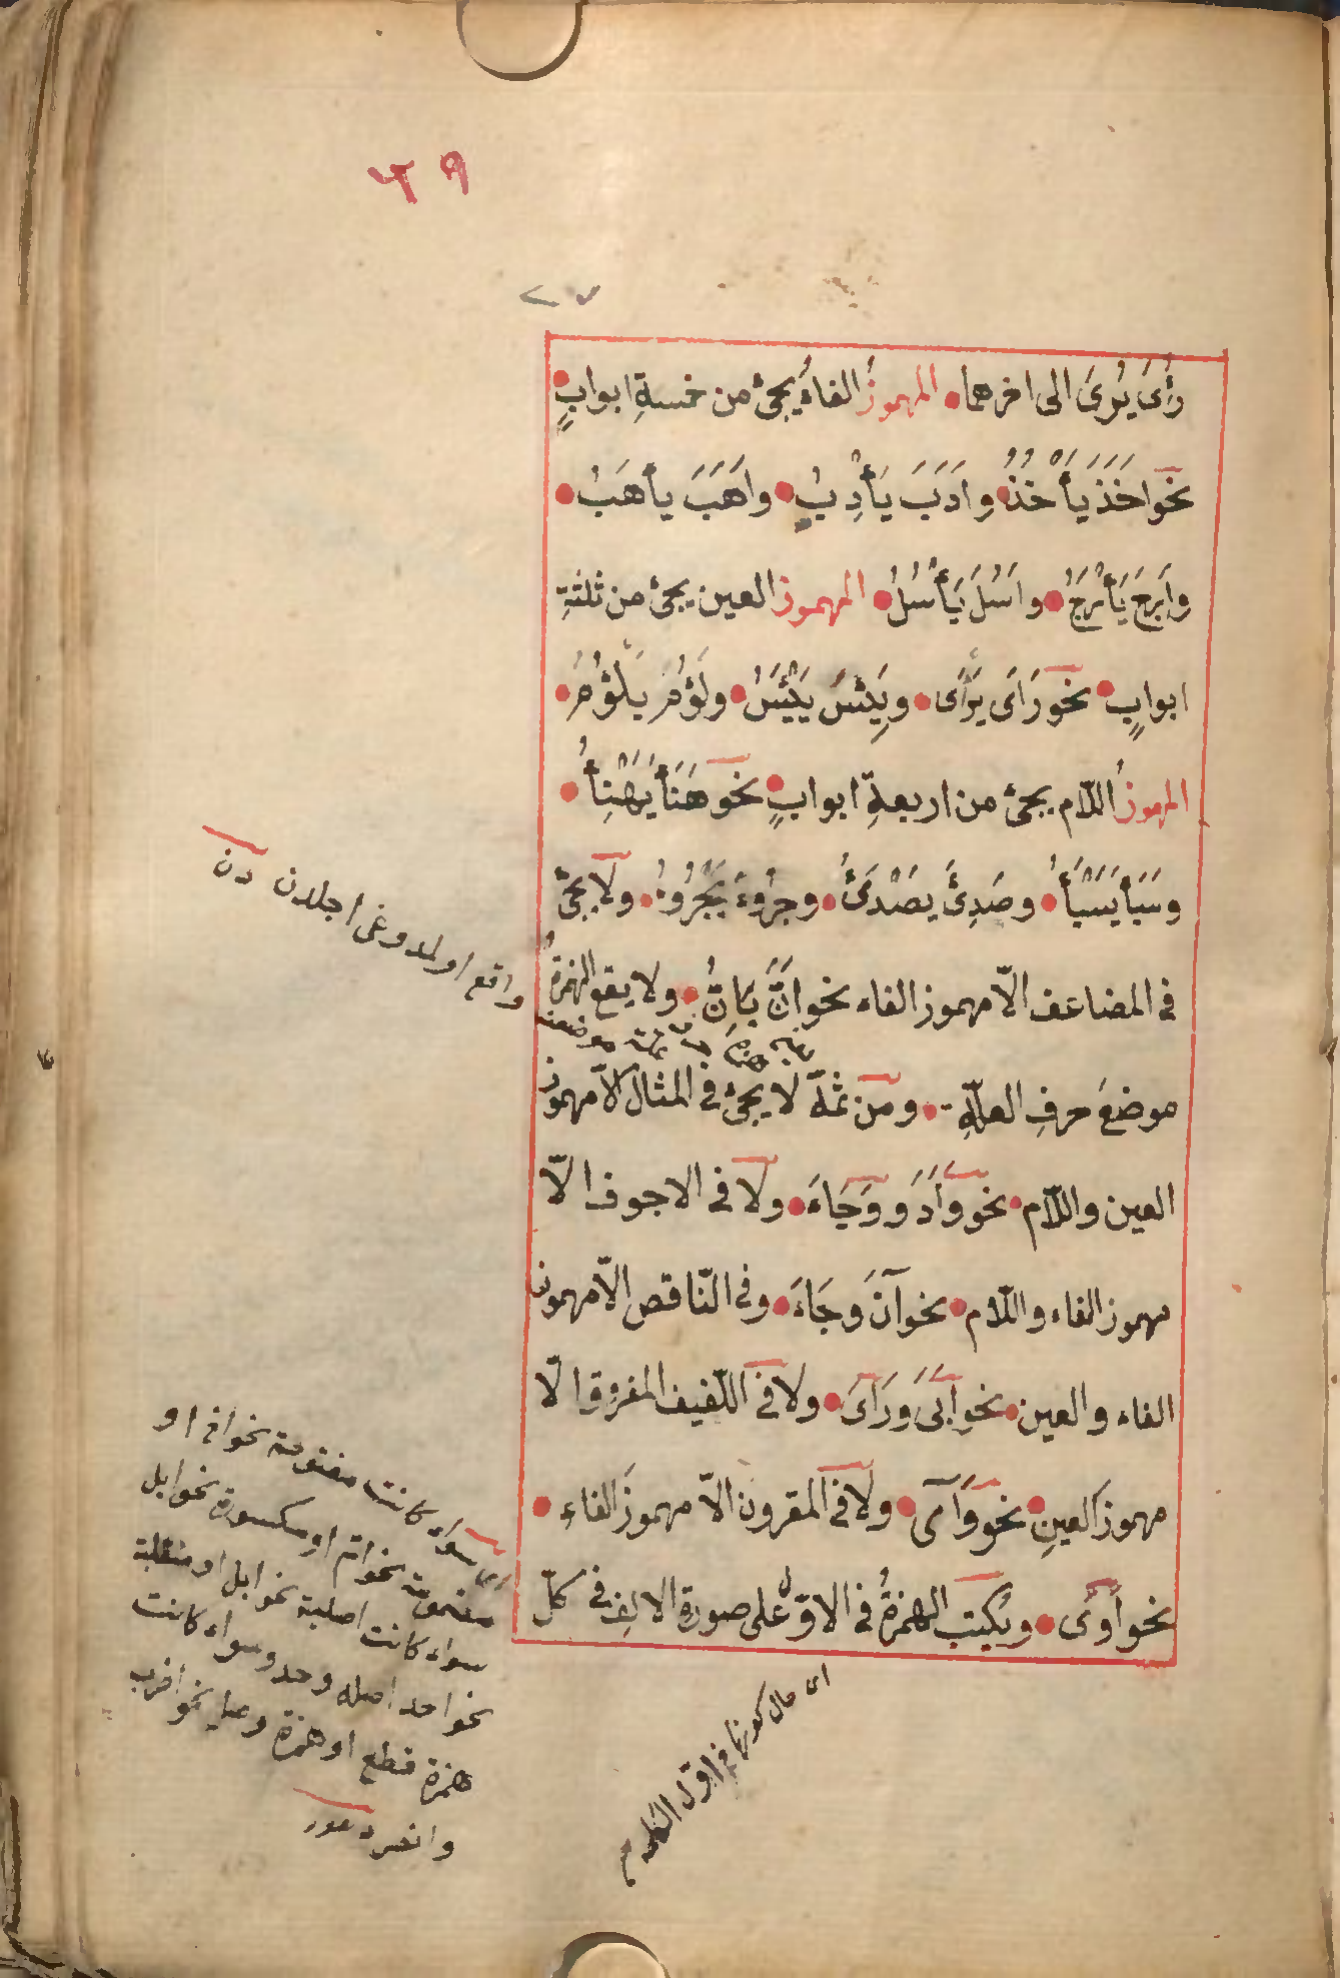 ٦٩
٢٧
رُأَى يُرىَ الى اخرهما المهموزُ الفاءُ يجئ من خمسةِ ابوابٍ
نحو اَخَذَ يَأْخُذُ وادَبَ يَأْدِبُ واَهَبَ يأهَبُ
وارَجَ يَأْرَجُ واسُلَ يَأْسُلُ المهموز العين يجئ من ثلثةِ
ابوابٍ نحو رَاَى يَرْأَى ويَئِسَ يَيْئَسُ ولَؤُمَ يَلْؤُمُ
المهموزُ اللّام يجئ من اربعةِ ابوابٍ نحو هَنَأَ يَهْنِأُ
وسَبَأَ يَسْبَأُ وصَدِئَ يصْدَئُ وجرُوءَ يَجْرُوءُ ولا يجئ
فى المضاعف الّا مهموز الفاء نحو اَنَّ يَانِّ ولا يقع الهمزةُ
موضعَ حرفِ العلّةِ ومن ثمّة لا يجئ فى المثال الّا مهموز
العين واللّام نحو وَأَدَ و وَجَاءَ ولا فى الاجوف الّا
مهموز الفاء واللّام نحو آنَ وجَاءَ وفى النّاقص الّا مهموز
الفاء والعين نحو اَبَى وَرَاَىَ ولا فى اللّفيف المفروق الّا
مهموزَ العينِ نحو وَآى ولا فى المقرون الاّ مهموزَ الفاءِ
نحو أَوَى ويُكتب الهمزةُ فى الاوّل على صورة الالف فى كلّ
واقع اولمدوغى اجلدن دن
سواء كانت مفتوحة نحو اخ او
مضمومة نحو ام او مكسورة نحو ابل
سواء كانت اصلية نحو ابل او منقلبة
نحو احد اصله وحد وسواء كانت
همزة قطع او همزة وصل نحو اضرب
وانصر
اى حال كونها فى اوّل الكلمة